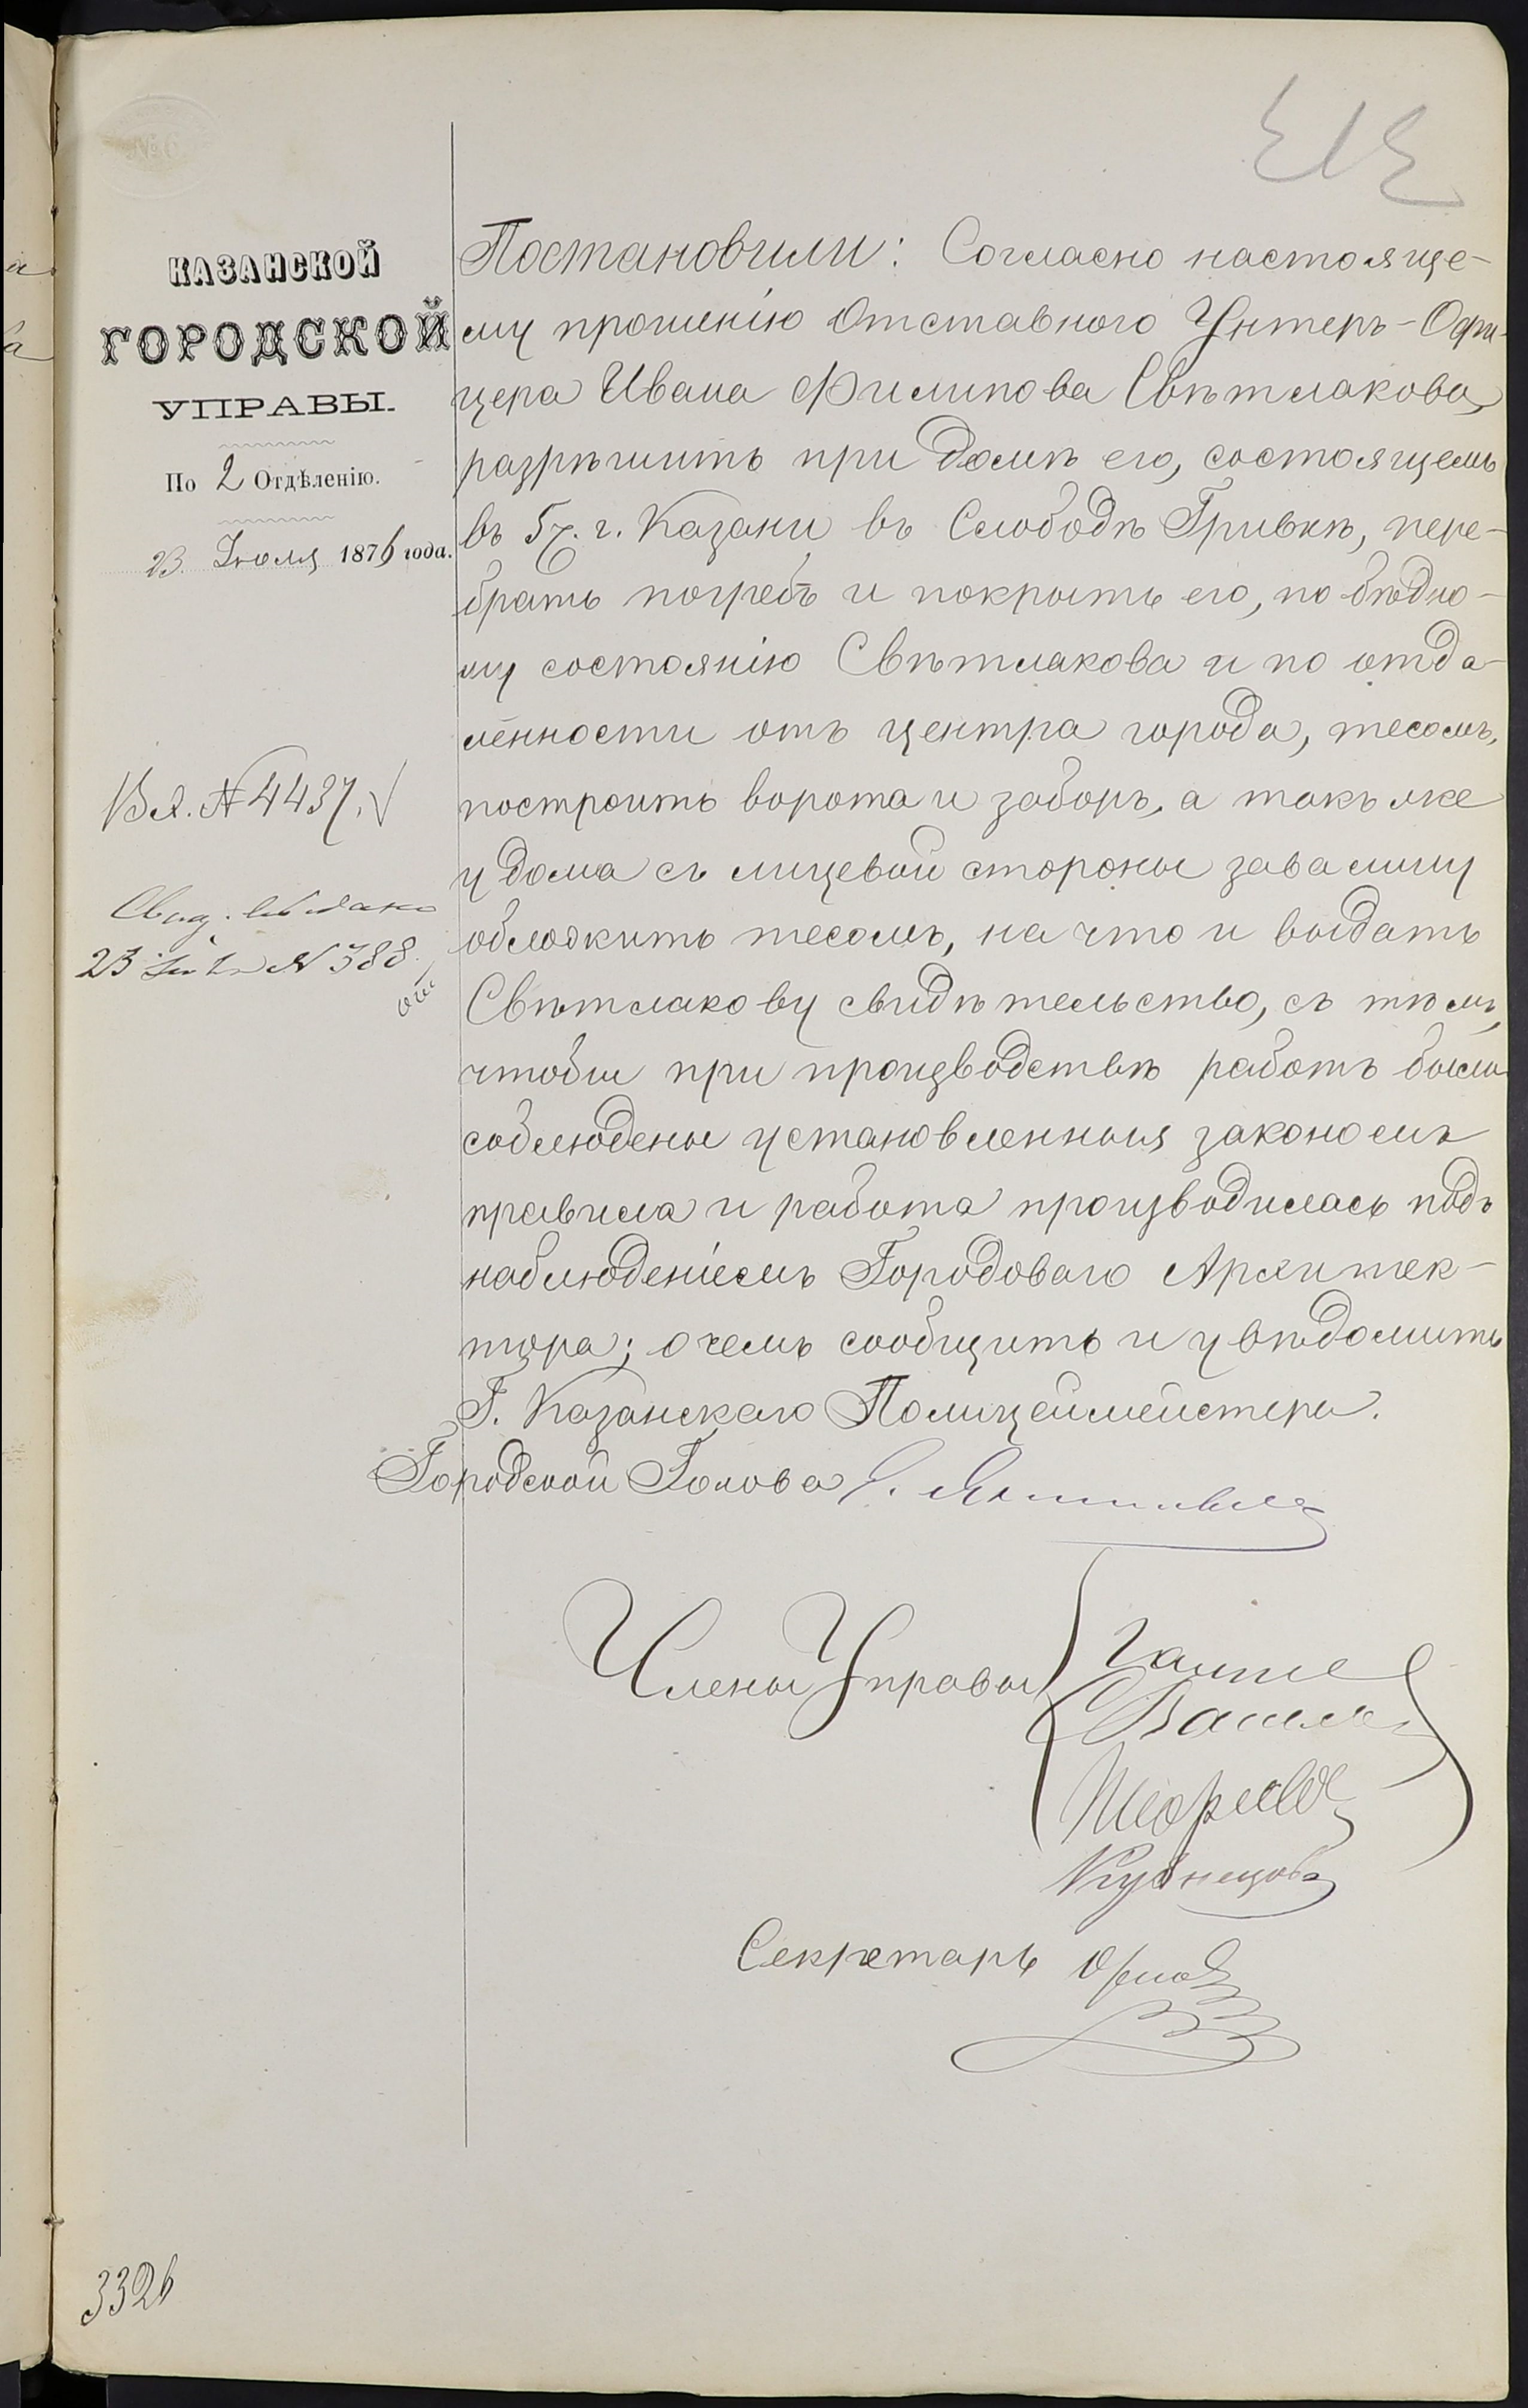 КАЗАНСКОЙ
ГОРОДСКОЙ
УПРАВЫ.
По 2 Отдѣленію.
23 Іюля 1876 года.
Вх. № 4437.
23 № 388
Постановили: Согласно настояще-
му прошенію Отставного Унтеръ-Офи-
цера Ивана Филипова Свѣтлакова,
разрѣшить при домѣ его, состоящемъ
въ 5 ч. г. Казани въ Слободѣ Гривкѣ, пере-
брать погребъ и покрыть его, по бѣдно-
му состоянію Свѣтлакова и по отда-
лённости отъ центра города, тесомъ,
построить ворота и заборъ, а такъ же
у дома съ лицевой стороны завалину
обложить тесомъ, на что и выдать
Свѣтлакову свидѣтельство, съ тѣмъ,
чтобы при производствѣ работъ были
соблюдены установленныя закономъ
правила и работа производилась подъ
наблюденіемъ Городоваго Архитек-
тора; о чемъ сообщить и увѣдомить
Г. Казанскаго Полицеймейстера.
Городской Голова
Члены Управы
Кузнецовъ
Секретарь
3326